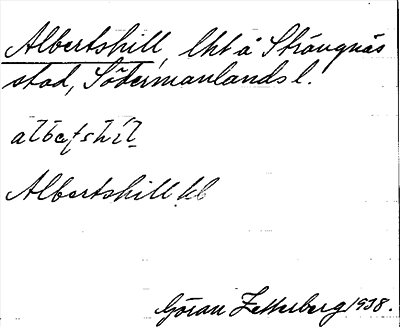 Albertshill, lht å Strängnäs
stad, Södermanlands l.
albeṭshil
Albertshill kb
Göran Zetterberg 1938.